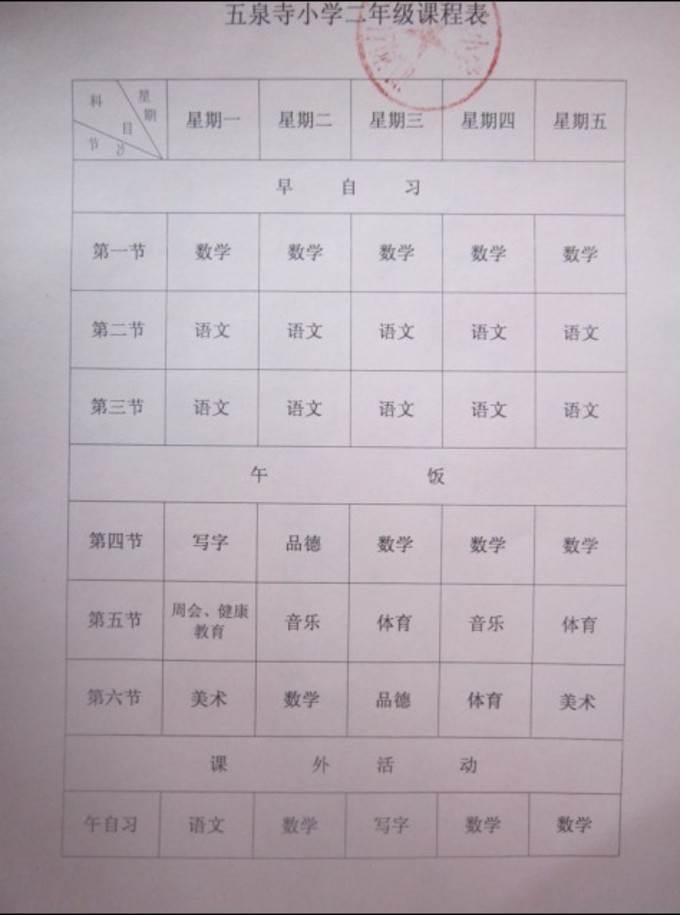 五泉寺小学二年级课程表
科 目 星期 节 次 星期一 星期二 星期三 星期四 星期五
早 自 习
第一节 数学 数学 数学 数学 数学
第二节 语文 语文 语文 语文 语文
第三节 语文 语文 语文 语文 语文
午 饭
第四节 写字 品德 数学 数学 数学
第五节 周会、健康教育 音乐 体育 音乐 体育
第六节 美术 数学 品德 体育 美术
课 外 活 动
午自习 语文 数学 写字 数学 数学